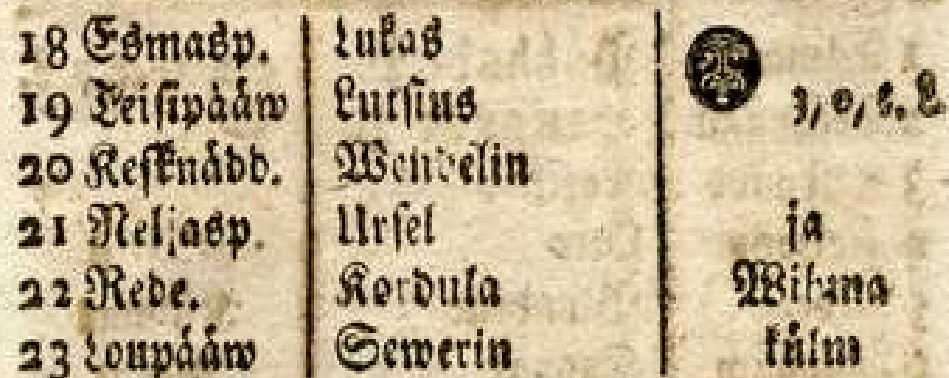 18 Esmasp. Lukas
19 Teisipääw Lutsius 3, 0, e. L
20 Kesknädd. Wendelin
21 Neljasp. Ursel ja
22 Rede. Kordula Wihma
23 Loupääw Sewerin külm